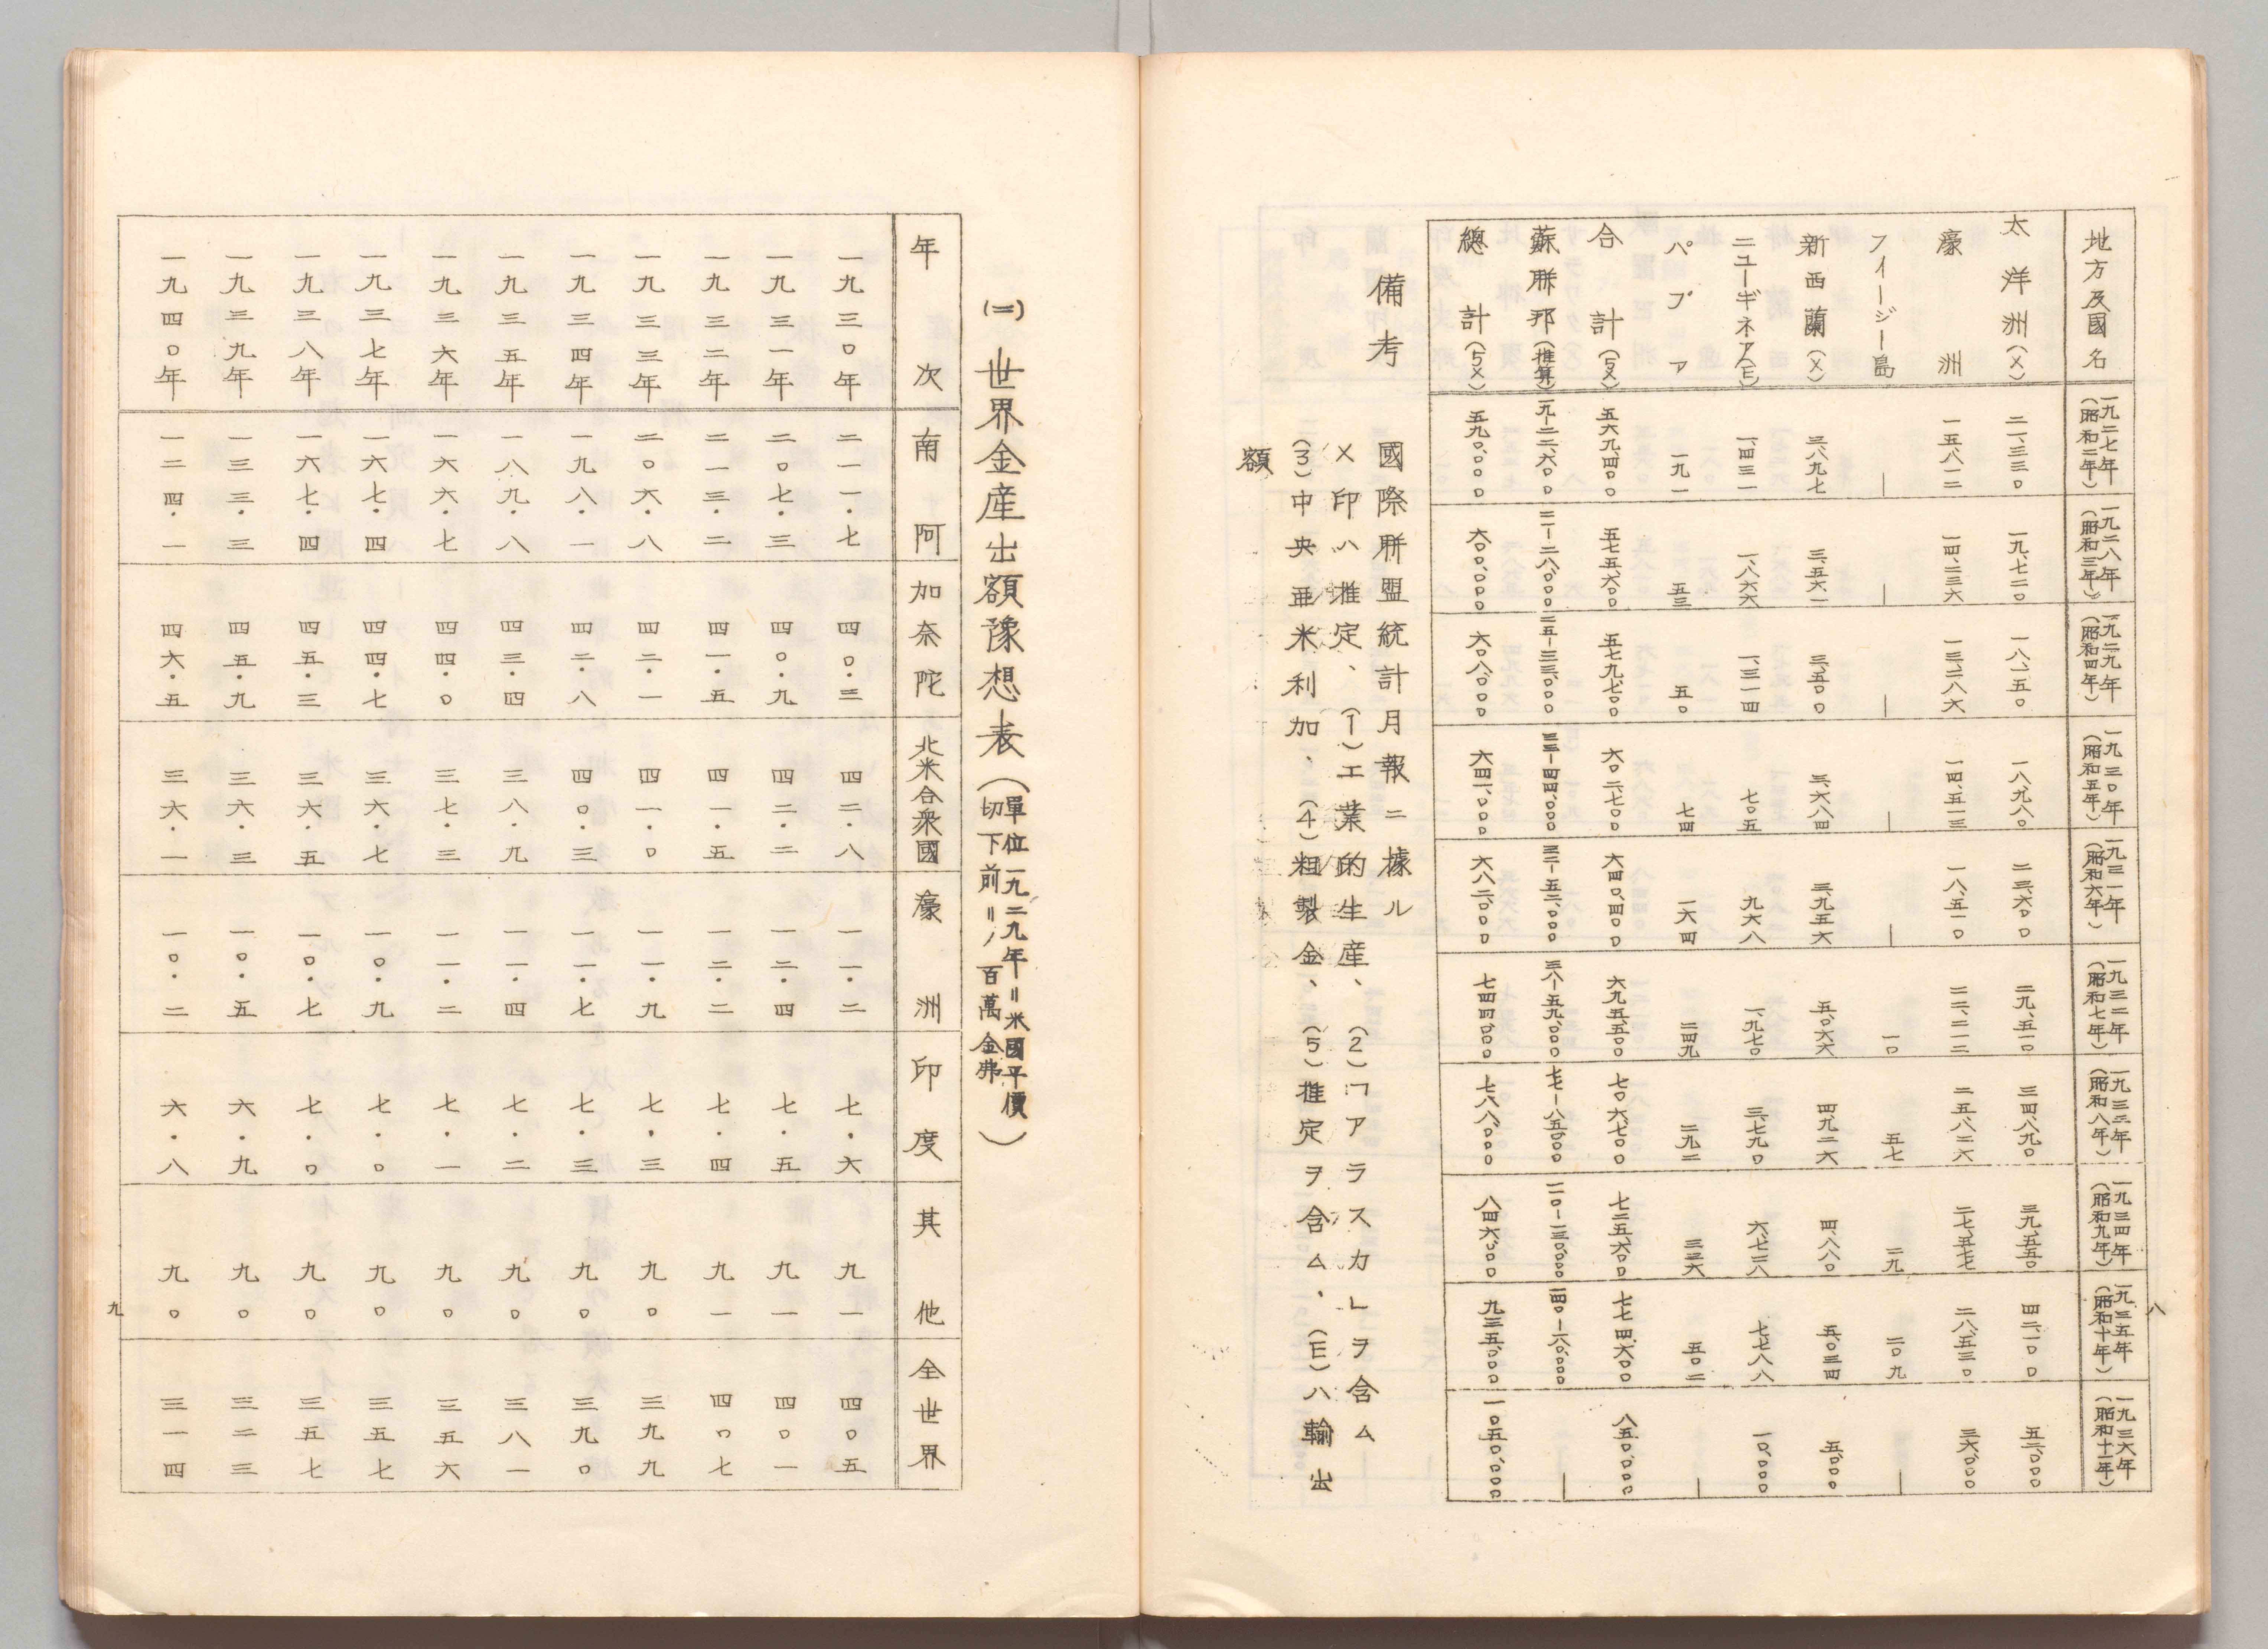 地方及國名 一九二七年(昭和二年) 一九二八年(昭和三年) 一九二九年(昭和四年) 一九三〇年(昭和五年) 一九三一年(昭和六年) 一九三二年(昭和七年) 一九三三年(昭和八年) 一九三四年(昭和九年) 一九三五年(昭和十年) 一九三六年(昭和十一年)
太洋洲(X) 二一、三三〇 一九、七二〇 一八、一五〇 一八、九八〇 二三、六〇〇 二九、五一〇 三四、八九〇 三九、五五〇 四二、一〇〇 五二、〇〇〇
濠洲 一五、八一二 一四、二三六 一三、二八六 一四、五一三 一八、五一〇 二二、二一二 二五、八二六 二七、五七七 二八、五三〇 三六、〇〇〇
フイージー島 ― ― ― ― ― 一〇 五七 二九 二〇九 ―
新西蘭(X) 三、八九七 三、五六一 三、五〇〇 三、六八四 三、九五六 五、〇六六 四、九二六 四、八八〇 五、〇三四 五、〇〇〇
ニューギネア(E) 一、四三一 一、八六六 一、三一四 七〇五 九六八 一、九七〇 三、七九〇 六、七二八 七、七八八 一〇、〇〇〇
パプア 一九一 五三 五〇 七四 一六四 二四九 二九二 三三六 五〇二 ―
合計(5X) 五六九、四〇〇 五七五、六〇〇 五七九、七〇〇 六〇二、七〇〇 六四〇、四〇〇 六九五、五〇〇 七〇六、七〇〇 七二五、六〇〇 七七四、六〇〇 八五〇、〇〇〇
蘇聯邦(推算) 一九―二二、六〇〇 二一―二八、〇〇〇 二五―三三、〇〇〇 三三―四四、〇〇〇 三二―五二、〇〇〇 三八―五九、〇〇〇 七七―八五、〇〇〇 一一〇―一三〇、〇〇〇 一四〇―一六〇、〇〇〇 ―
總計(5X) 五九〇、〇〇〇 六〇〇、〇〇〇 六〇八、〇〇〇 六四一、〇〇〇 六八二、〇〇〇 七四四、〇〇〇 七八八、〇〇〇 八四六、〇〇〇 九三五、〇〇〇 一、〇五〇、〇〇〇
備考
國際聯盟統計月報ニ據ル
X印ハ推定、(1)工業的生産、(2)「アラスカ」ヲ含ム
(3)中央亜米利加、(4)粗製金、(5)推定ヲ含ム、(E)ハ輸出
額
八
(二)世界金産出額豫想表(單位一九二九年=米國平價切下前=ノ百萬金弗)
年次 南阿 加奈陀 北米合衆國 濠洲 印度 其他 全世界
一九三〇年 二一一・七 四〇・三 四二・八 一一・二 七・六 九一 四〇五
一九三一年 二〇七・三 四〇・九 四二・二 一二・四 七・五 九一 四〇一
一九三二年 二一三・二 四一・五 四一・五 一二・二 七・四 九一 四〇七
一九三三年 二〇六・八 四二・一 四一・〇 一一・九 七・三 九〇 三九九
一九三四年 一九八・一 四二・八 四〇・三 一一・七 七・三 九〇 三九〇
一九三五年 一八九・八 四三・四 三八・九 一一・四 七・二 九〇 三八一
一九三六年 一六六・七 四四・〇 三七・三 一一・二 七・一 九〇 三五六
一九三七年 一六七・四 四四・七 三六・七 一〇・九 七・〇 九〇 三五七
一九三八年 一六七・四 四五・三 三六・五 一〇・七 七・〇 九〇 三五七
一九三九年 一三三・三 四五・九 三六・三 一〇・五 六・九 九〇 三二三
一九四〇年 一二四・一 四六・五 三六・一 一〇・二 六・八 九〇 三一四
九